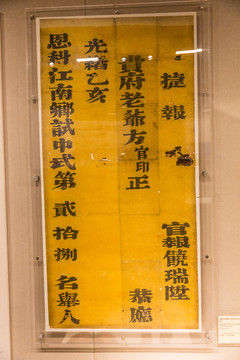 捷報
貴府老爺方官印正
光緒乙亥
恩科江南鄉試中式第貳拾捌名舉人
官報饒瑞陞
恭廳